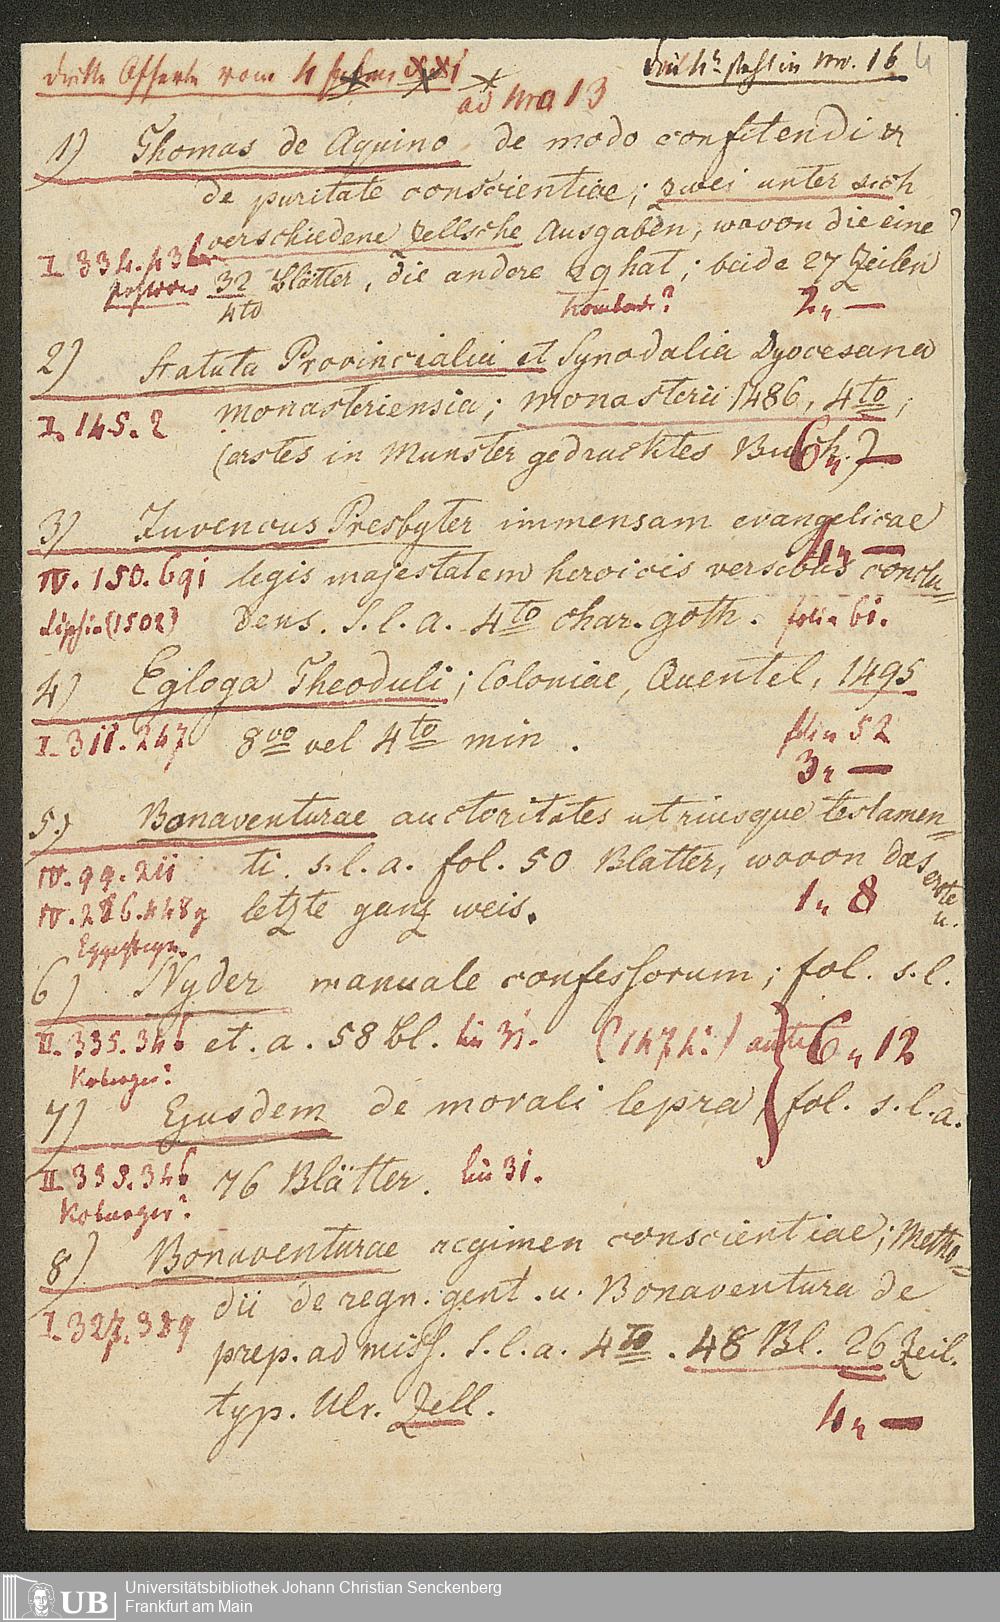 dritte Offerte vom 4
ad Nro 13
steht in Nro. 16 4
1) Thomas de Aquino de modo confitendi &
de puritate conscientiae; zwei unter sich
verschiedene Zellsche Ausgaben, wovon die eine
I. 334.
32 Blätter, die andere 29 hat; beide 27 Zeilen
4to ? 2 " —
2) Statuta Provincialia et Synodalia Dyocesana
I. 145. 2 monasteriensia; monasterii 1486, 4to,
(erstes in Munster gedrucktes Buch.) 6 " —
3) Juvencus Presbyter immensam evangelicae
IV. 150. 691 legis majestatem heroicis versibus conclu= 1 " —
Lipsia (1502) dens. S. l. a. 4to char. goth. 61.
4) Egloga Theoduli; Coloniae, Quentel, 1495
I. 311. 247 8vo vel 4to min. 52
3 " —
5.) Bonaventurae auctoritates utriusque testamen=
IV. 99. 211 ti. s. l. a. fol. 50 Blatter, wovon das erste u.
IV. 286. 448 g letzte ganz weis. 1 " 8
Eggesteyn.
6) Nyder manuale confessorum; fol. s. l.
II. 335. 346 et. a. 58 bl. lin 31. 6 " 12
Koberger?
7) Ejusdem de morali lepra, fol. s. l. a.
II. 335. 346 76 Blätter. lin 31.
Koberger?
8) Bonaventurae regimen conscientiae; Metho=
I. 327. 389 dii de regn. gent. u. Bonaventura de
prep. ad miss. S. l. a. 4to. 48 Bl. 26 Zeil.
typ. Ulr. Zell. 4 " —
UB
Universitätsbibliothek Johann Christian Senckenberg
Frankfurt am Main